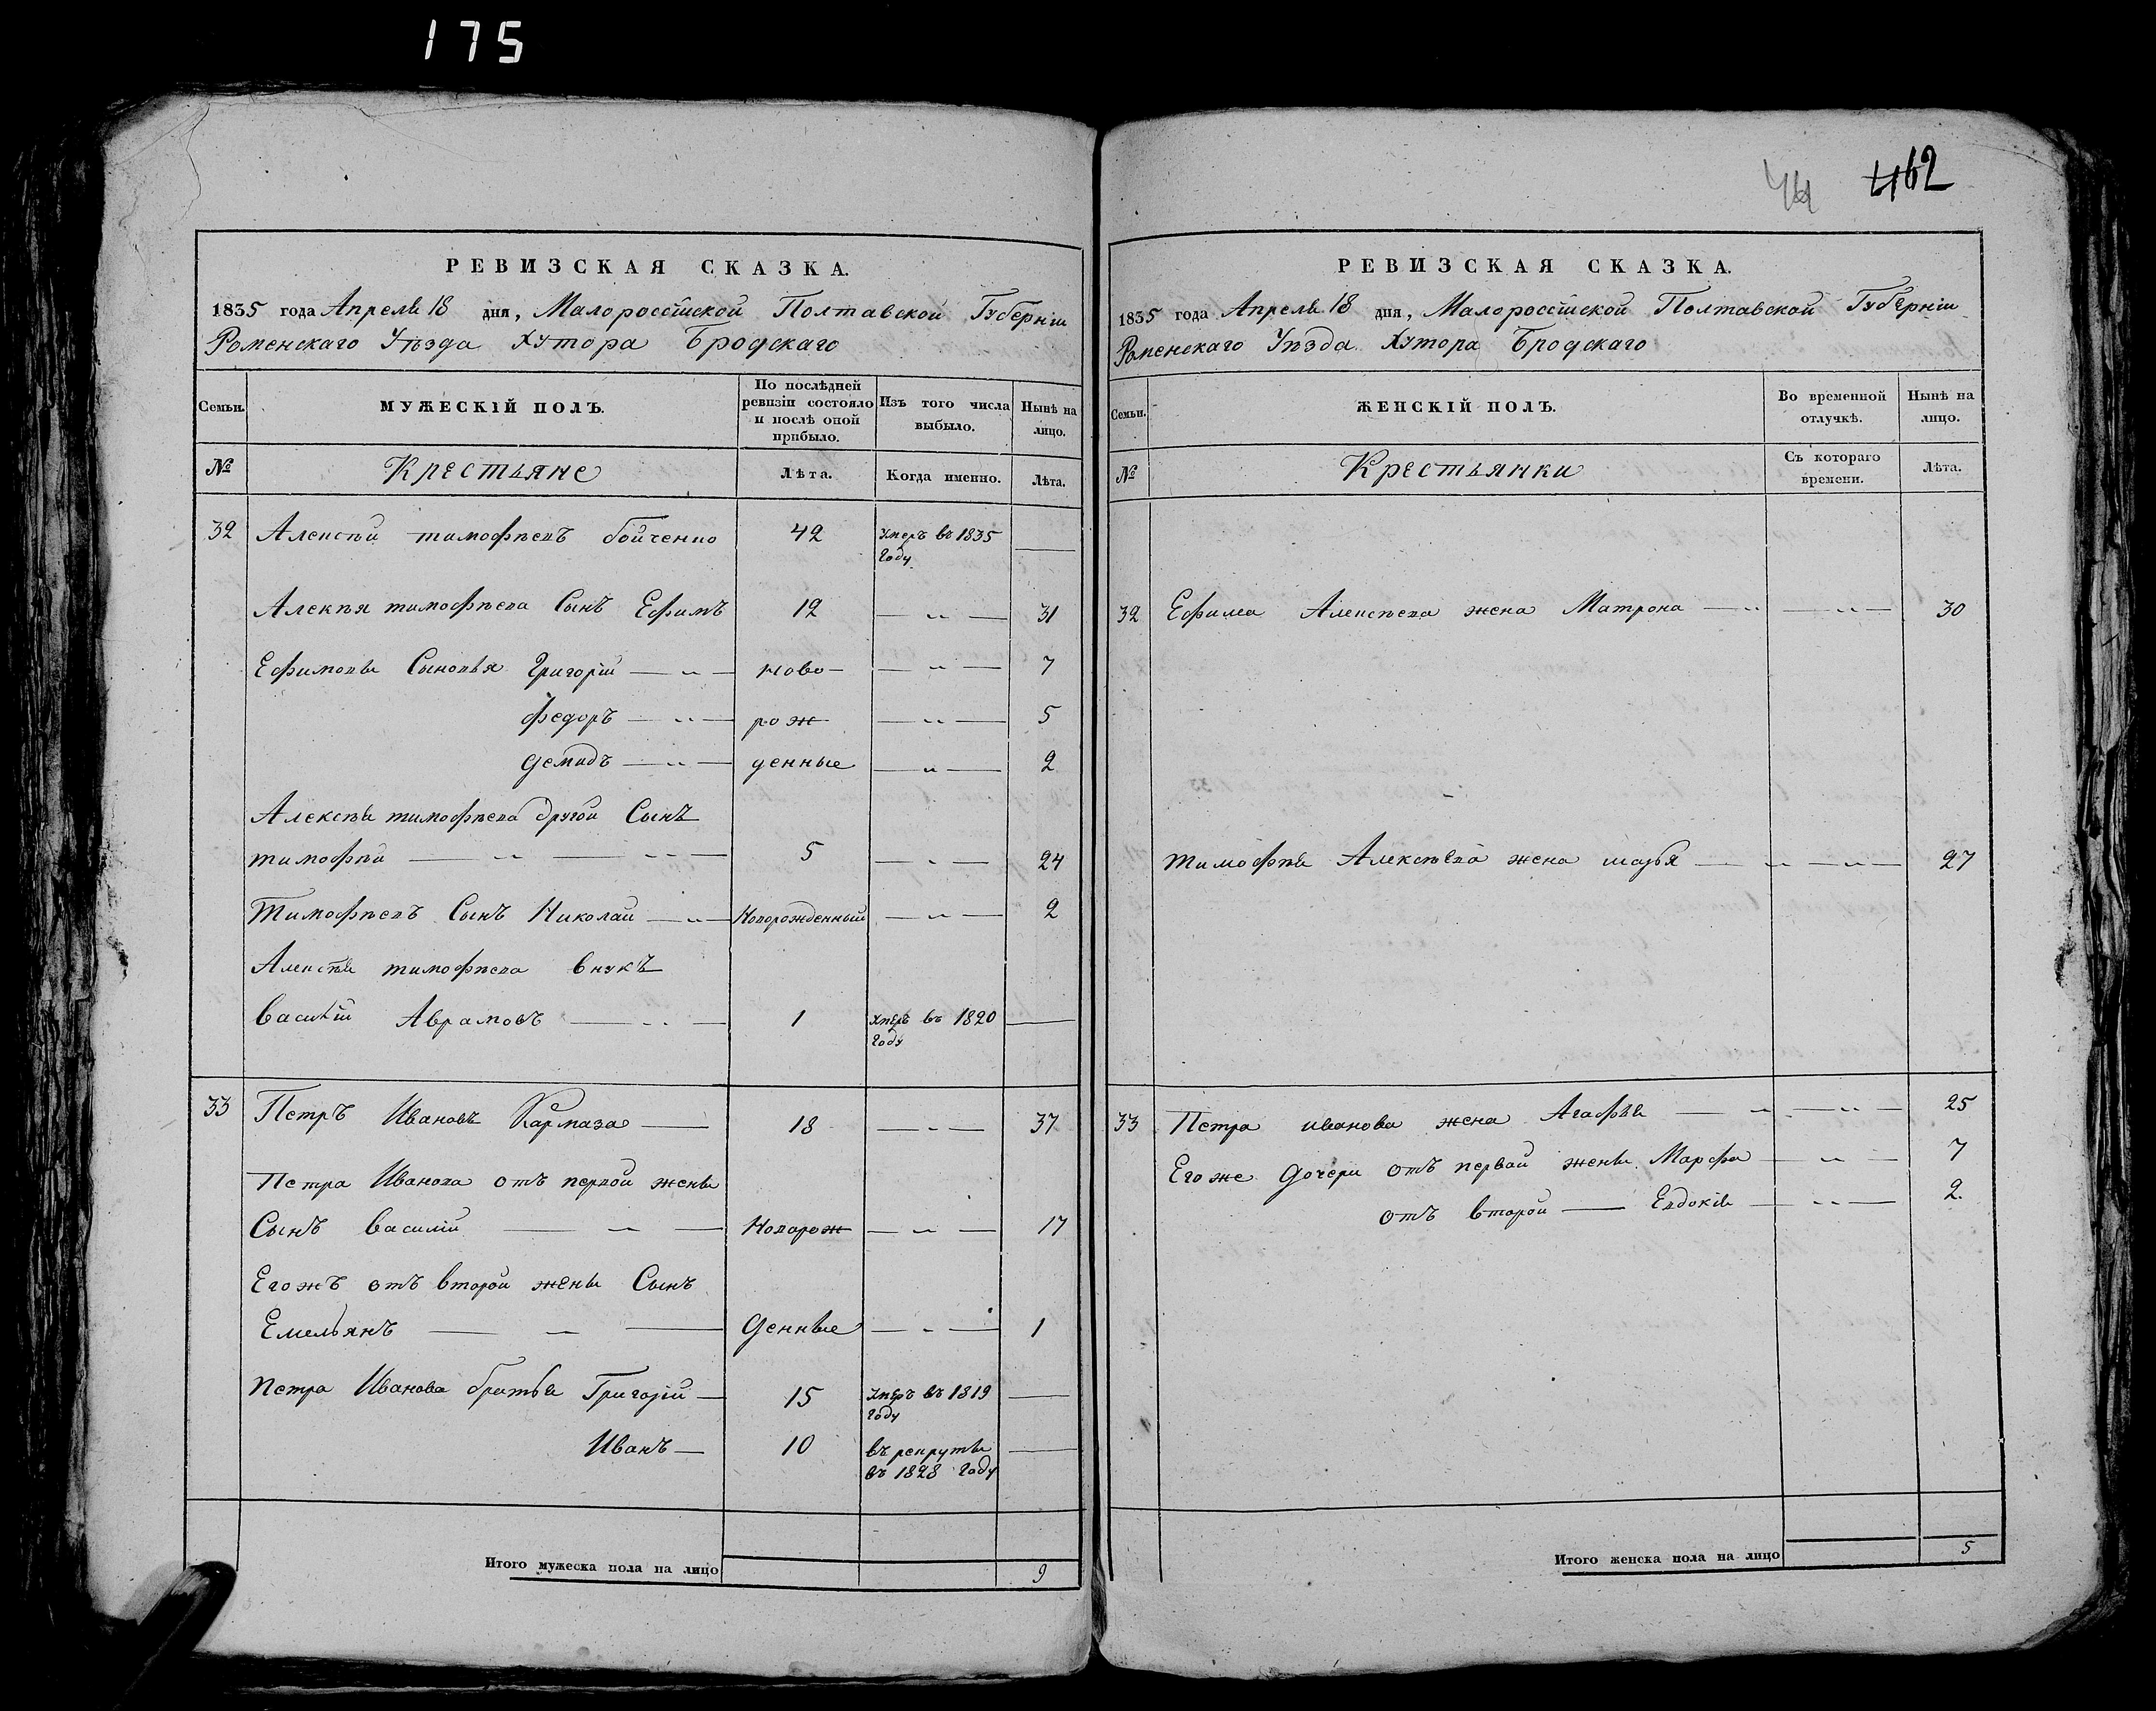 175
462
44
РЕВИЗСКАЯ СКАЗКА.
1835 года Апреля 18 дня, Малороссійской Полтавской Губерніи
Роменскаго Уѣзда Хутора Бродскаго
Семьи.
МУЖЕСКІЙ ПОЛЪ.
По послѣдней ревизіи состояло и послѣ оной прибыло.
Изъ того числа выбыло.
Нынѣ на лицо.
№ Крестьяне Лѣта. Когда именно. Лѣта.
32 Алексѣй тимофѣевъ бойченко 42 умеръ въ 1835 —
году
Алексѣя тимофѣева Сынъ Ефимъ 12 — „ — 31
Ефимовы Сыновья Григорій — „ — ново — — „ — 7
Федоръ — „ — рож — „ — 5
демидъ — „ — денные — „ — 2
Алексѣя тимофѣева другой Сынъ
тимофѣй — „ — „ — 5 — „ — 24
Тимофѣевъ Сынъ Николай — „ — Новорожденный — „ — 2
Алексѣя тимофѣева внукъ
василій Аврамовъ — „ — 1 умеръ въ 1820 —
году
33 Петръ Ивановъ Кармаза — 18 — „ — 37
Петра Иванова отъ первой жены
Сынъ василій — „ — Новорож — „ — 17
Его жъ отъ второй жены Сынъ
Емельянъ — — — денные — „ — 1
Петра Иванова братья Григорій — 15 умеръ въ 1819 —
году
Иванъ — 10 въ рекруты —
въ 1828 году
Итого мужеска пола на лицо 9
РЕВИЗСКАЯ СКАЗКА.
1835 года Апреля 18 дня, Малороссійской Полтавской Губерніи
Роменскаго Уѣзда Хутора Бродскаго
Семьи.
ЖЕНСКІЙ ПОЛЪ.
Во временной отлучкѣ.
Нынѣ на лицо.
№ Крестьянки Съ котораго времени. Лѣта.
32 Ефима Алексѣева жена Матрона — „ — „ — 30
тимофѣя Алексѣева жена марья — „ — „ — 27
33 Петра иванова жена Агафья — „ — „ — 25
Его же дочери отъ первой жены Марфа — „ — 7
отъ второй — Евдокія — „ — 2.
Итого женска пола на лицо 5